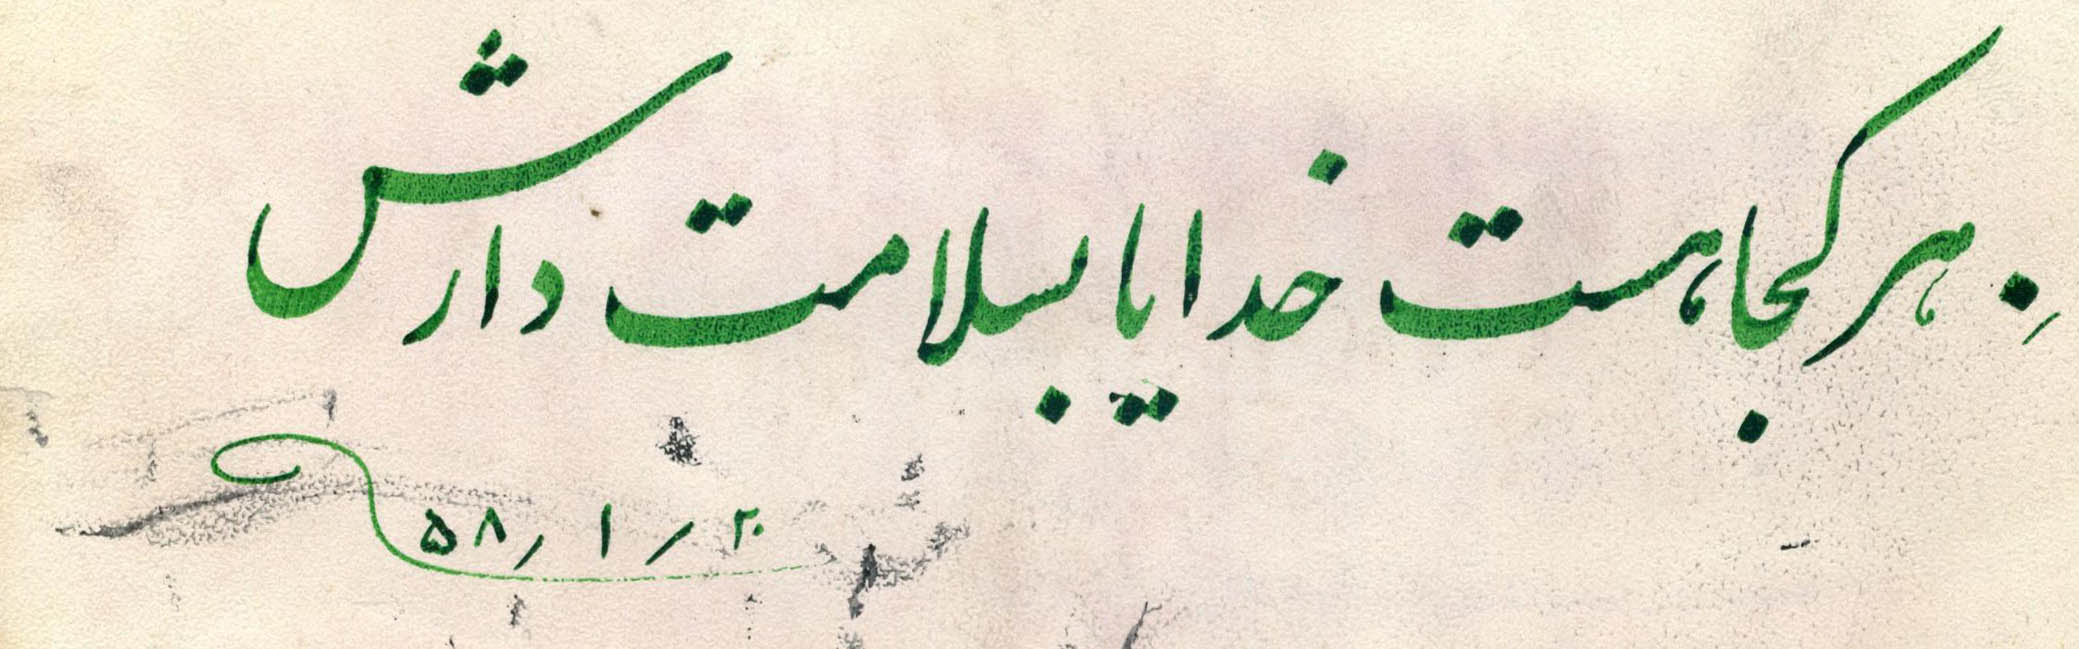 هر کجا هست خدایا بسلامت دارش
۲۰/۱/۵۸